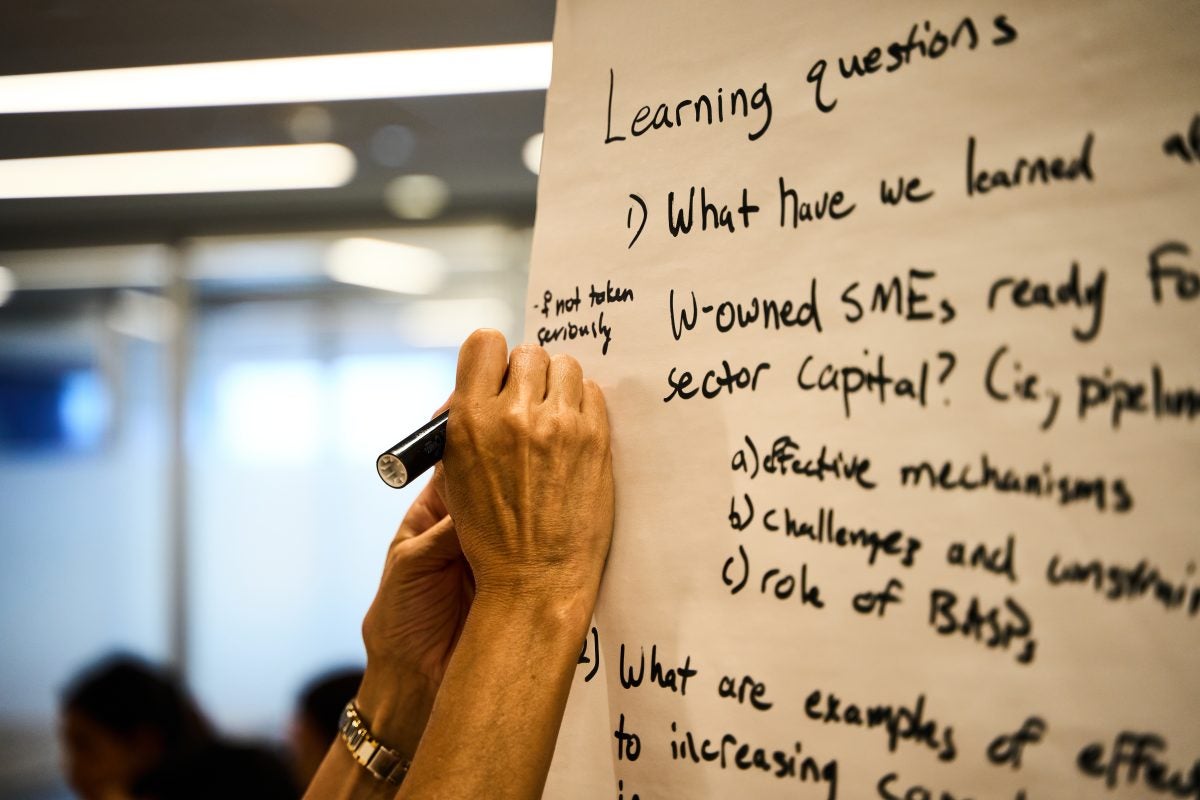 Learning questions
1) What have we learned
- if not taken
seriously
W-owned SMEs ready
sector capital? (ie, pipelin
a) effective mechanisms
b) challenges and constrain
c) role of BASPs
2) What are examples of effec
to increasing
in